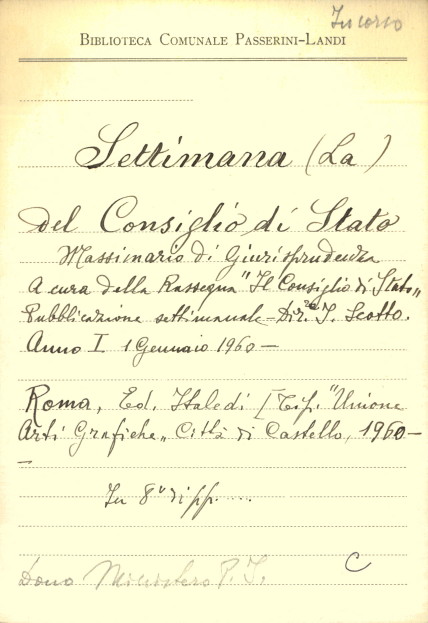 In corso
BIBLIOTECA COMUNALE PASSERINI-LANDI
Settimana (La)
del Consiglio di Stato
Massimario di Giurisprudenza
A cura della Rassegna "Il Consiglio di Stato"
Pubblicazione settimanale - Dir.e I. Scotto.
Anno I 1 Gennaio 1960 —
Roma, Ed. Italedi [Tip. "Unione
Arti Grafiche" Città di Castello, 1960 —
—
In 8° di pp. ....
C
Dono Ministero P. I.